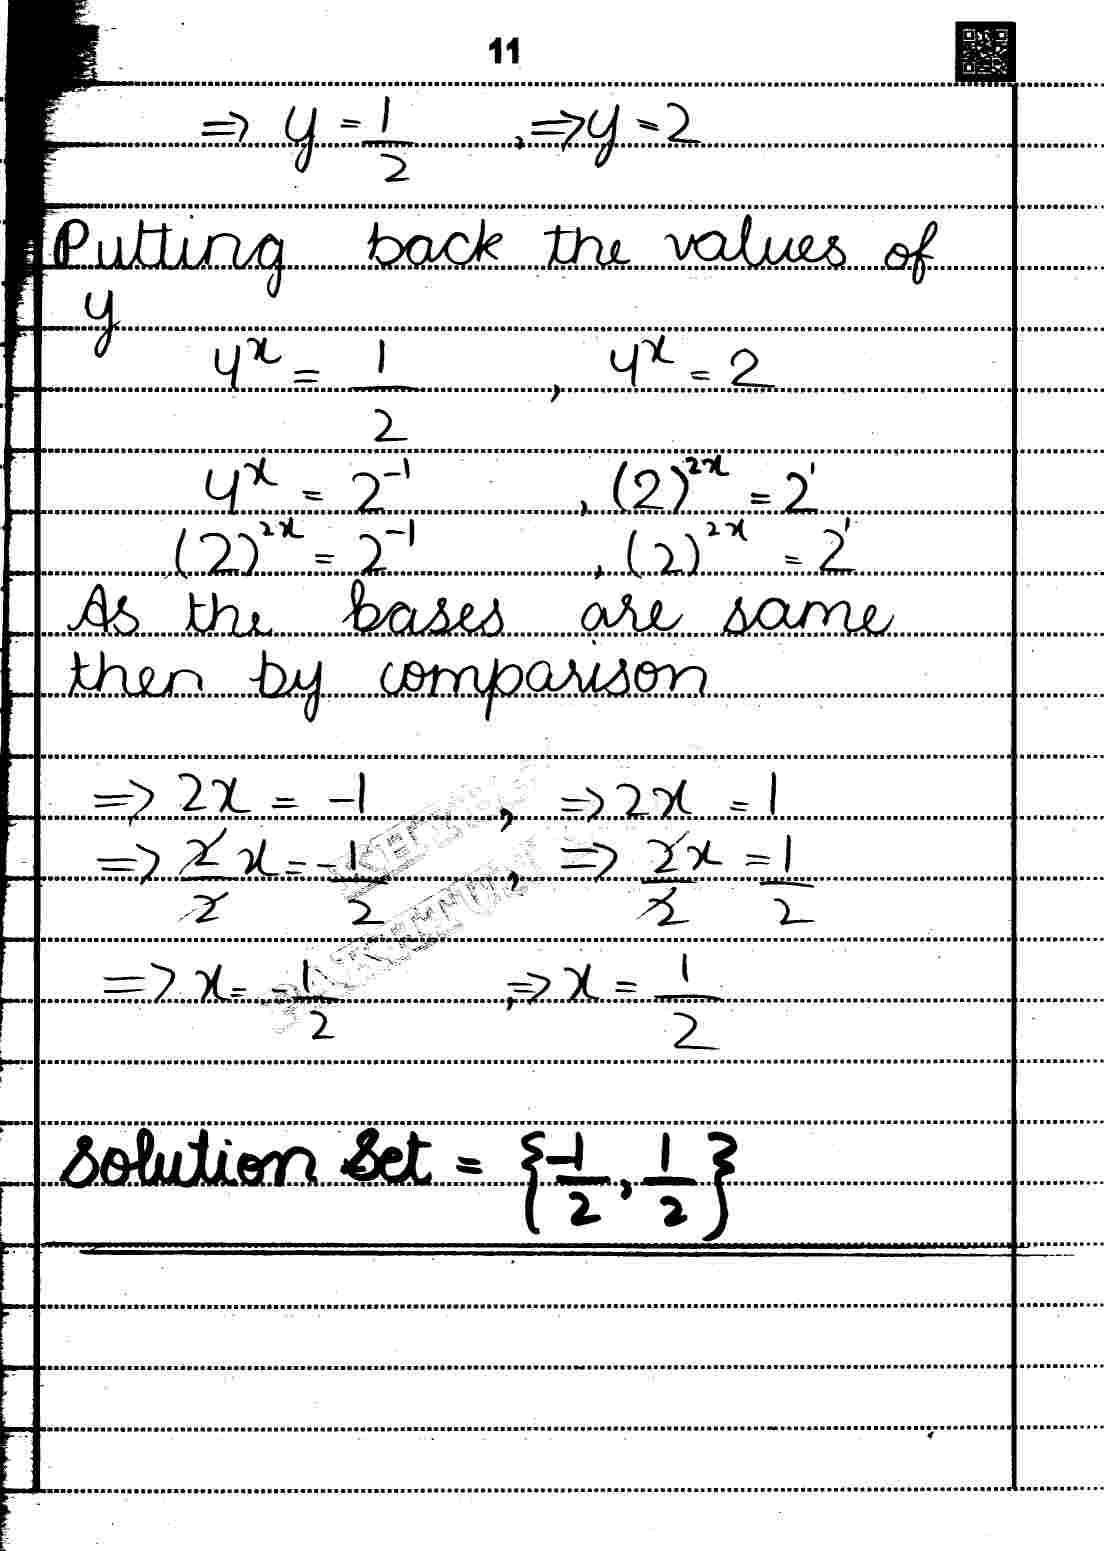 11
⇒ y = 1/2 , ⇒ y = 2
Putting back the values of
y
4^x = 1/2 , 4^x = 2
4^x = 2^-1 , (2)^2x = 2^1
(2)^2x = 2^-1 , (2)^2x = 2^1
As the bases are same
then by comparison
⇒ 2x = -1 , ⇒ 2x = 1
⇒ 2/2 x = -1/2 , ⇒ 2x/2 = 1/2
⇒ x = -1/2 , ⇒ x = 1/2
Solution Set = {-1/2 , 1/2}